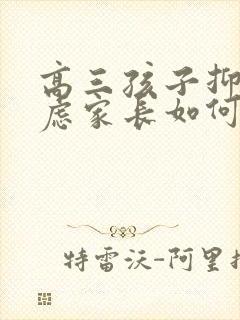 高三孩子抑
虑家长如何
特雷沃-阿里